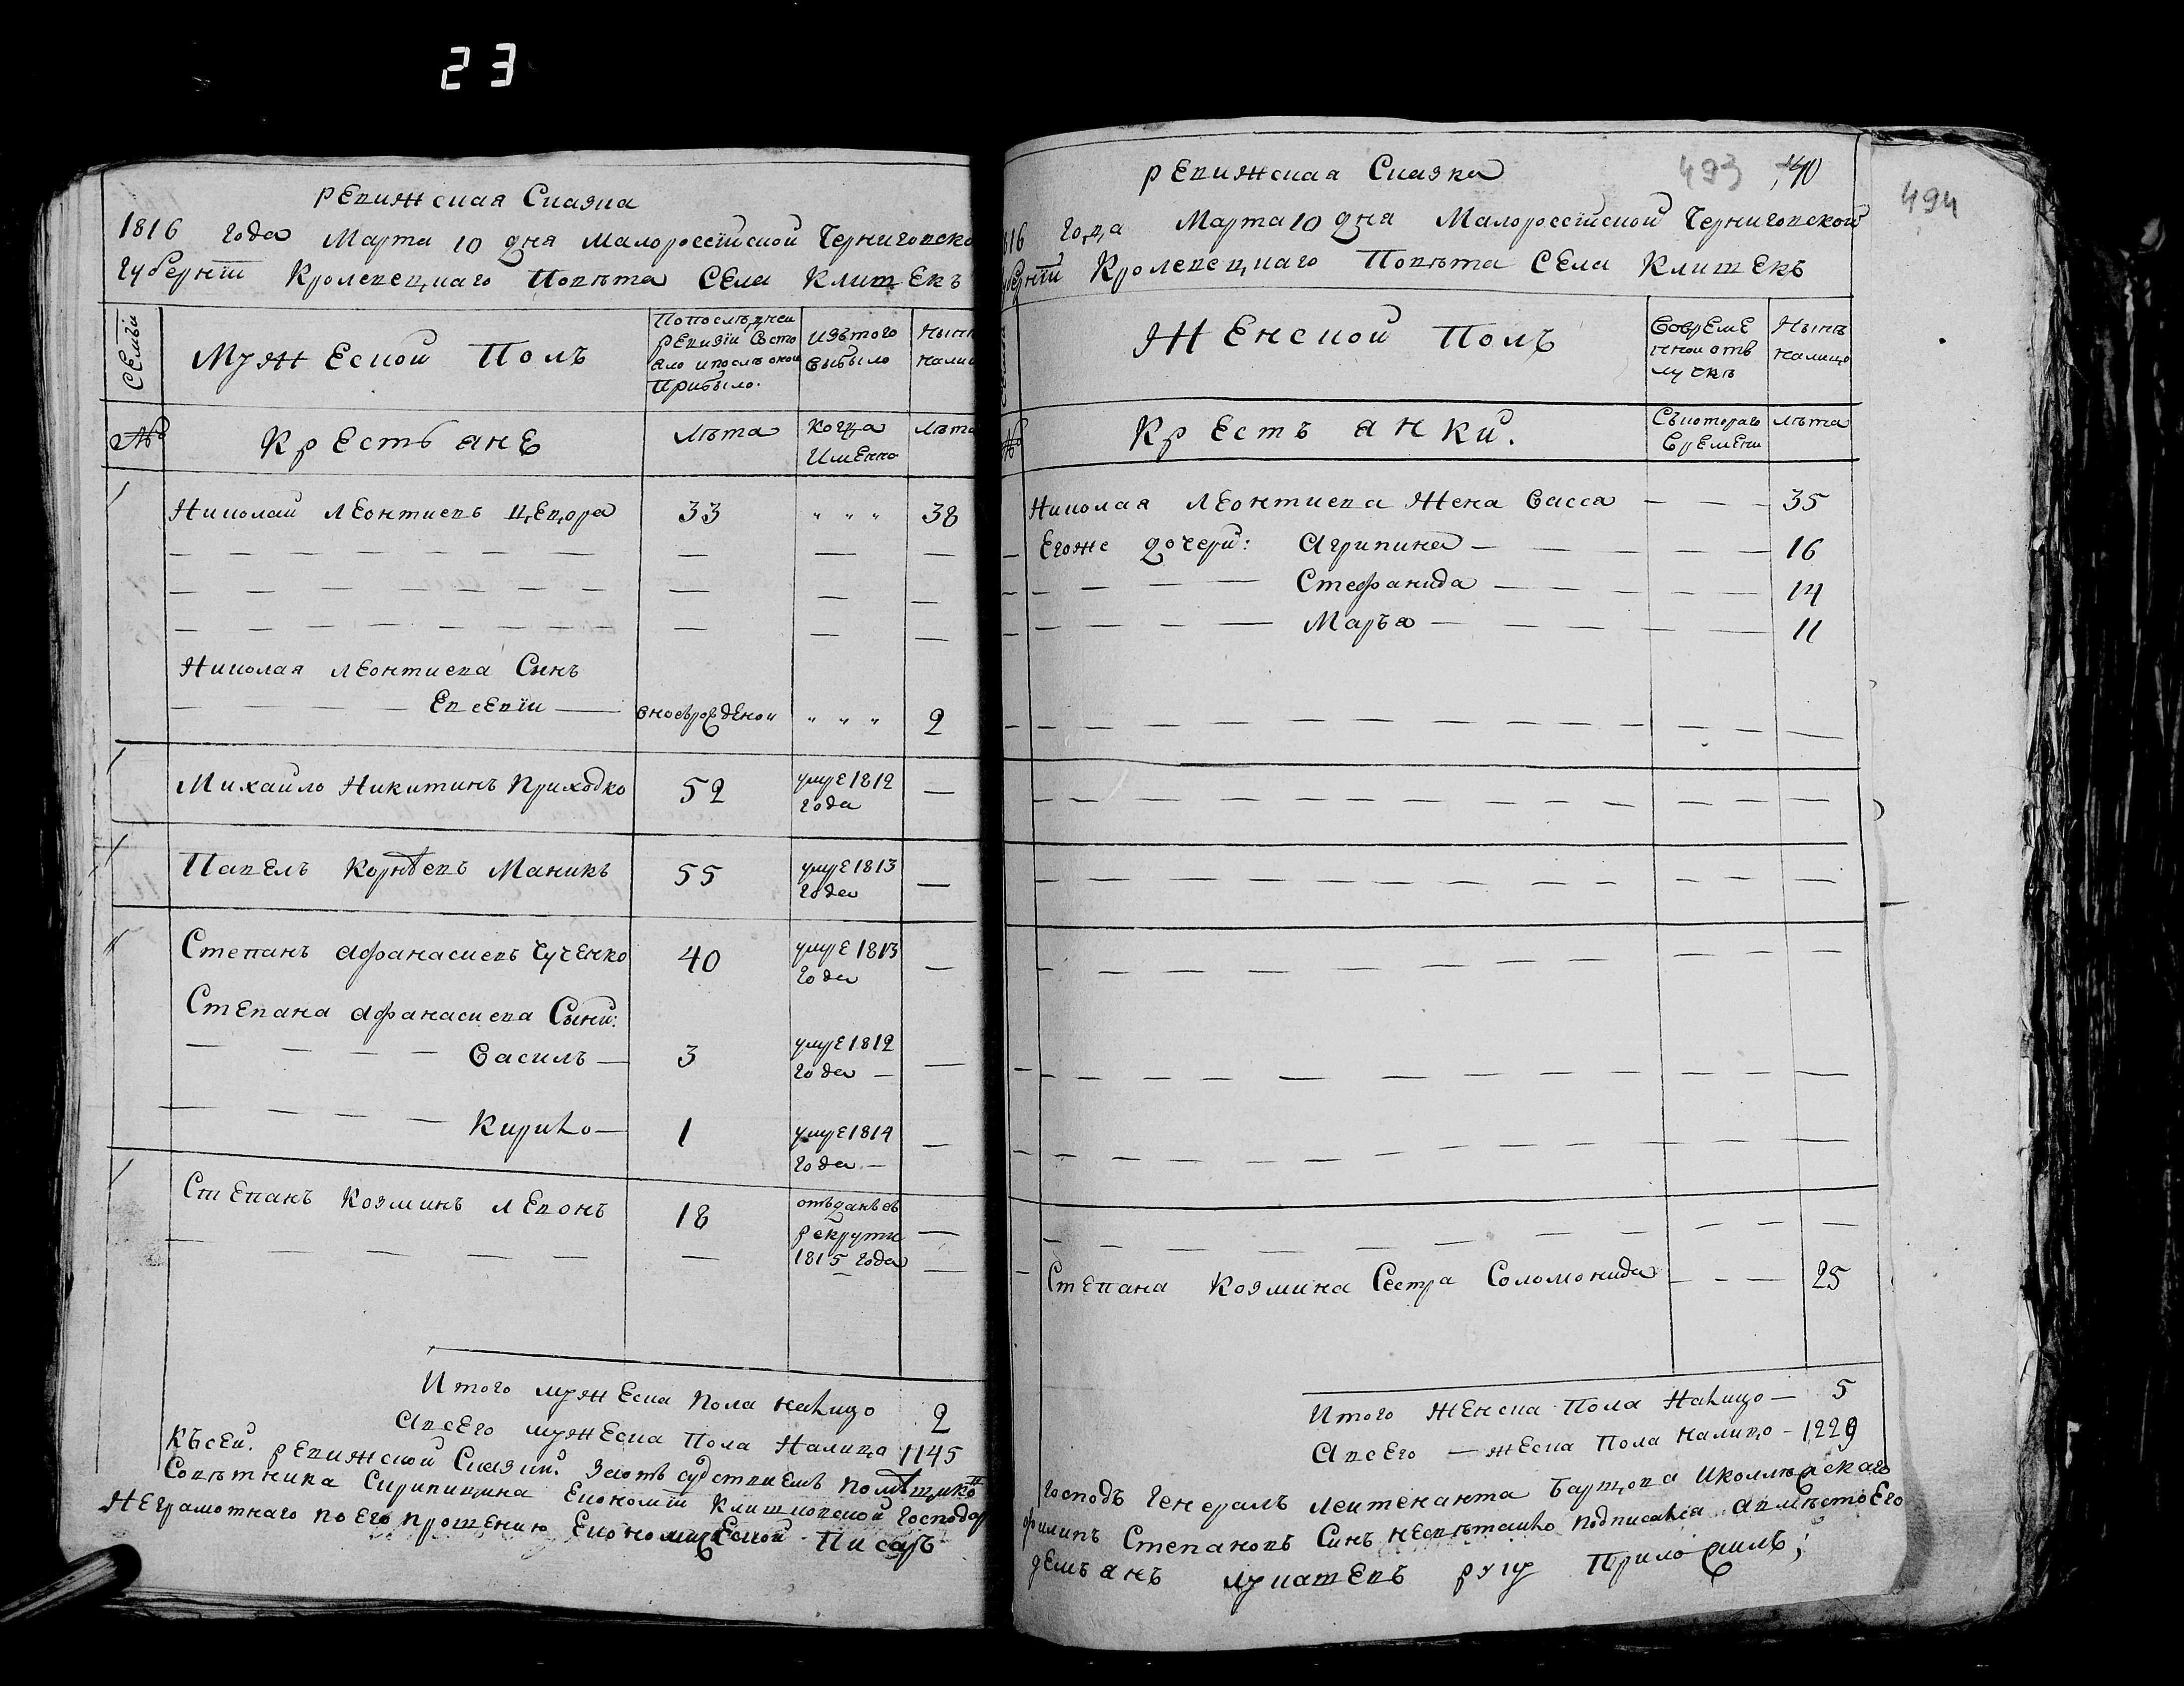 23
Ревижская Сказка
1816 года Марта 10 дня Малоросейской Черниговско
Губернїи Кролевецкаго Повѣта Села Клишекъ
Семьи
Мужеской Полъ
Попослѣдней
ревизїи Состо
яло ипослѣ оной
Прибыло.
Изътого
выбыло
Нын
нали
№
Крестьяне
Лѣта
Когда
Именно
Лѣта
Николай Леонтиевъ Цецора 33 " " " 38
Николая Леонтиева Сынъ
Евсевїи вновьрожденой " " " 2
Михайло Никитинъ Приходко 52 умре 1812
года
Павелъ Корнѣевъ Маникъ 55 умре 1813
года
Степанъ Афанасиевъ Чученко 40 умре 1813
года
Степана Афанасиева Сыни:
Василъ 3 умре 1812
года
Кирило 1 умре 1814
года
Степанъ Козминъ Левонъ 18 отъданъвъ
рекруты
1815 года
Итого мужеска пола налицо 2
Авсего мужеска Пола Налицо 1145
Късей ревижской Сказки Заотъсудствиемъ помѣщиковъ
Совѣтника Скрипицина Економїи Клишковской Господар
Неграмотнаго по его прошению Економической Писарь
Ревижская Сказка
493 140
494
816 Года Марта 10 дня Малоросейской Черниговской
убернїи Кролевецкаго Повѣта Села Клишекъ
Женской Полъ
Совреме
нной отъ
лучкѣ
Нынѣ
налицо
№
Крестъянки.
Съкотораго
времени
лѣта
Николая Леонтиева Жена Васса 35
Егоже дочери: Агрипина 16
Стефанида 14
Маръя 11
Степана Козмина Сестра Соломонида 25
Итого Женска Пола Налицо 5
Авсего жеска Пола налицо 1229
Господъ Генералъ Леитенанта Иколлежскаго
Филипъ Степановъ Синъ Подписался Авмѣстоего
Демъянъ руку Приложилъ;